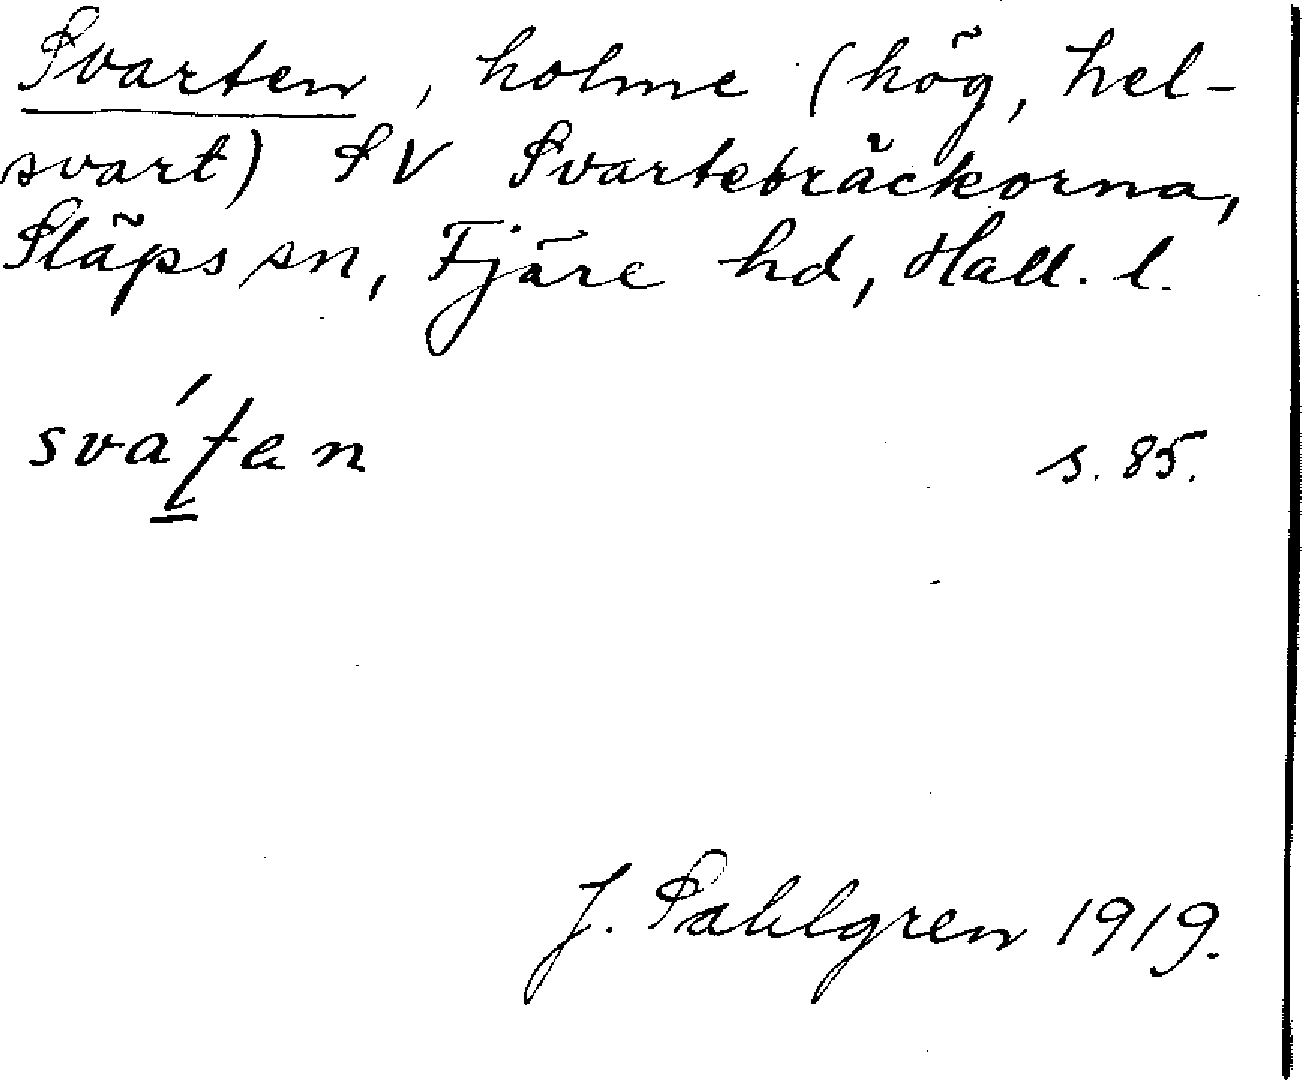 Svarten, holme (hög, hel-
svart) SV Svartebräckorna,
Släps sn, Fjäre hd, Hall. l.
s. 85.
J. Sahlgren 1919.